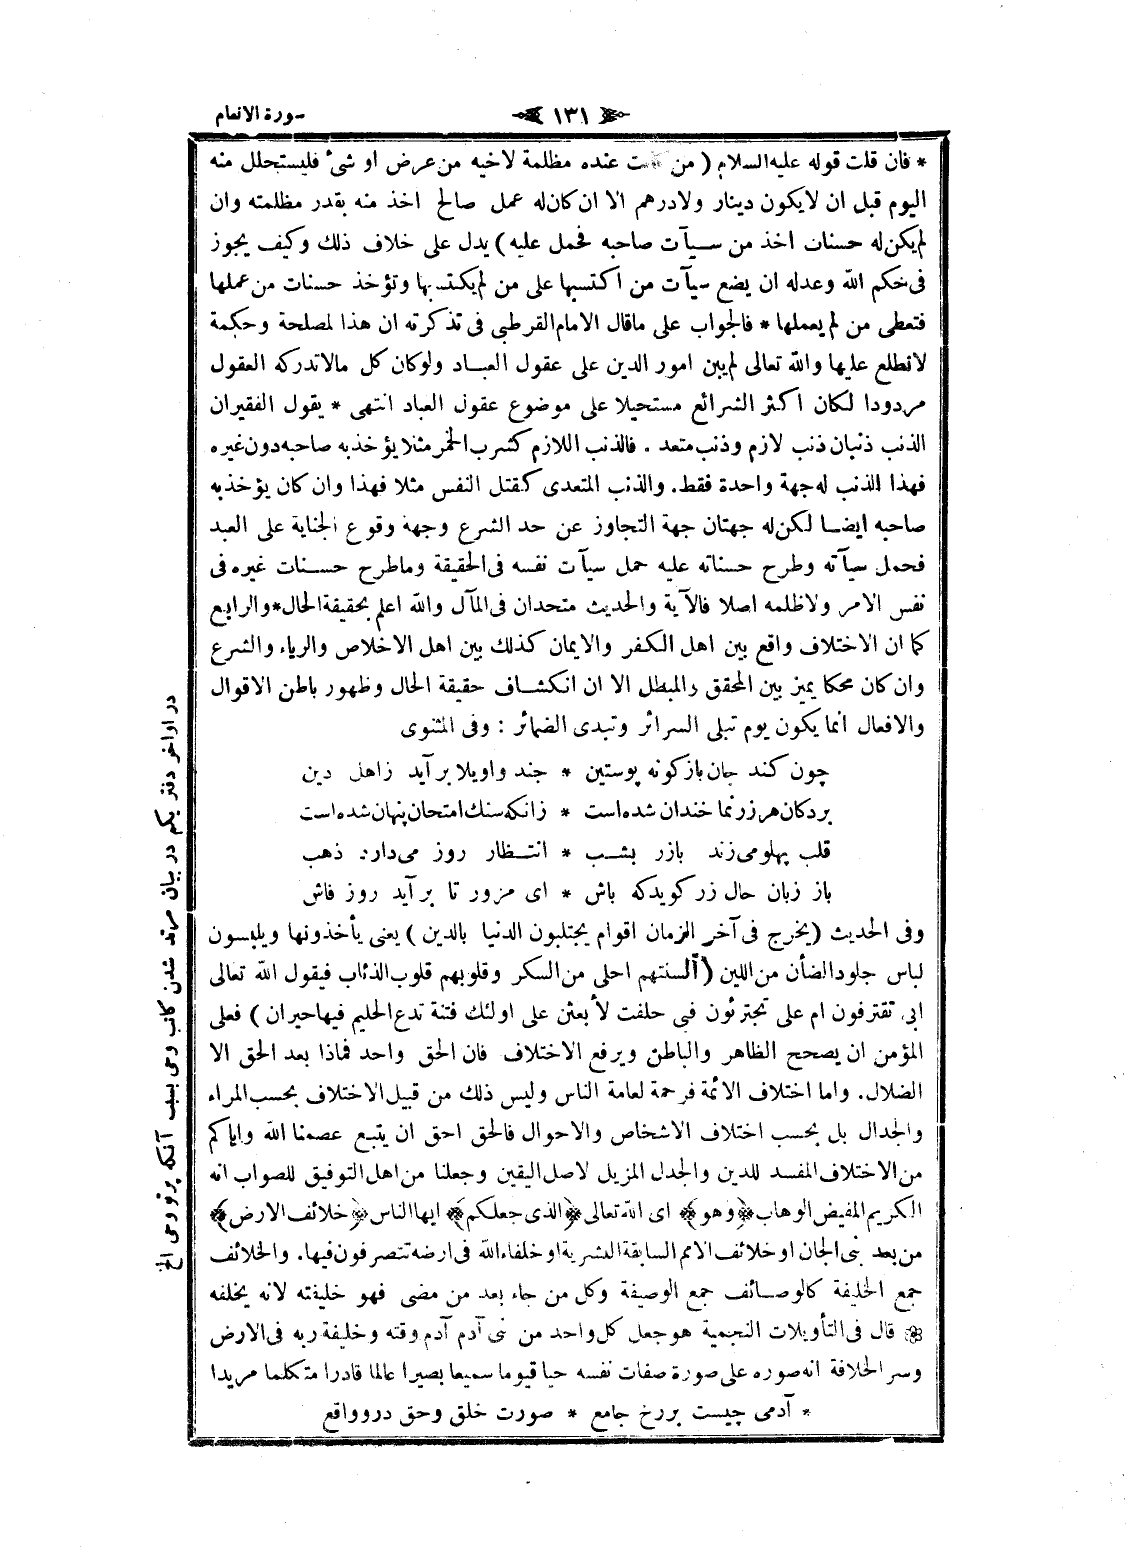 سورة الانعام
١٣١
* فان قلت قوله عليه السلام ( من عنده مظلمة لاخيه من عرض او شئ فليستحلل منه
اليوم قبل ان لايكون دينار ولادرهم الا ان كان له عمل صالح اخذ منه بقدر مظلمته وان
لم يكن له حسنات اخذ من سيآت صاحبه فحمل عليه ) يدل على خلاف ذلك وكيف يجوز
فى حكم الله وعدله ان يضع سيآت من اكتسبها على من لم يكتسبها وتؤخذ حسنات من عملها
فتعطى من لم يعملها * فالجواب على ماقال الامام القرطبى فى تذكرته ان هذا لمصلحة وحكمة
لانطلع عليها والله تعالى لم يبن امور الدين على عقول العباد ولوكان كل مالاتدركه العقول
مردودا لكان اكثر الشرائع مستحيلا على موضوع عقول العباد انتهى * يقول الفقيران
الذنب ذنبان ذنب لازم وذنب متعد . فالذنب اللازم كشرب الخمر مثلا يؤخذبه صاحبه دون غيره
فهذا الذنب له جهة واحدة فقط . والذنب المتعدى كقتل النفس مثلا فهذا وان كان يؤخذبه
صاحبه ايضا لكن له جهتان جهة التجاوز عن حد الشرع وجهة وقوع الجناية على العبد
فحمل سيآته وطرح حسناته عليه حمل سيآت نفسه فى الحقيقة وماطرح حسنات غيره فى
نفس الامر ولاظلمه اصلا فالآية والحديث متحدان فى المآل والله اعلم بحقيقة الحال * والرابع
كما ان الاختلاف واقع بين اهل الكفر والايمان كذلك بين اهل الاخلاص والرياء والشرع
وان كان محكا يميز بين المحقق والمبطل الا ان انكشاف حقيقة الحال وظهور باطن الاقوال
والافعال انما يكون يوم تبلى السرائر وتبدى الضمائر : وفى المثنوى
چون كند جان بازكونه پوستين * چند واويلا برآيد زاهل دين
بردكان هر زرنما خندان شده است * زانكه سنك امتحان پنهان شده است
قلب پهلو مى زند بازر بشب * انتظار روز مى دارد ذهب
باز زبان حال زر كويدكه باش * اى مزور تا برآيد روز فاش
وفى الحديث ( يخرج فى آخر الزمان اقوام يجتلبون الدنيا بالدين ) يعنى يأخذونها ويلبسون
لباس جلود الضأن من اللين ( ألسنتهم احلى من السكر وقلوبهم قلوب الذئاب فيقول الله تعالى
ابى تغترفون ام على تجترئون فبى حلفت لأبعثن على اولئك فتنة تدع الحليم فيها حيران ) فعلى
المؤمن ان يصحح الظاهر والباطن ويرفع الاختلاف فان الحق واحد فماذا بعد الحق الا
الضلال . واما اختلاف الائمة فرحمة لعامة الناس وليس ذلك من قبيل الاختلاف بحسب المراء
والجدال بل بحسب اختلاف الاشخاص والاحوال فالحق احق ان يتبع عصمنا الله واياكم
من الاختلاف المفسد للدين والجدل المزيل لاصل اليقين وجعلنا من اهل التوفيق للصواب انه
الكريم المفيض الوهاب ﴿ وهو ﴾ اى الله تعالى ﴿ الذى جعلكم ﴾ ايها الناس ﴿ خلائف الارض ﴾
من بعد بنى الجان او خلائف الامم السابقة البشرية او خلفاء الله فى ارضه تتصرفون فيها . والخلائف
جمع الخليفة كالوصائف جمع الوصيفة وكل من جاء بعد من مضى فهو خليفته لانه يخلفه
قال فى التأويلات النجمية هو جعل كل واحد من بنى آدم آدم وقته وخليفة ربه فى الارض
وسر الخلافة انه صوره على صورة صفات نفسه حيا قيوما سميعا بصيرا عالما قادرا متكلما مريدا
* آدمى چيست برزخ جامع * صورت خلق وحق دروواقع
در اواخر دفتر يكم در بيان مرتد شدن كاتب وحى بسبب آنكه پرتو وحى الخ